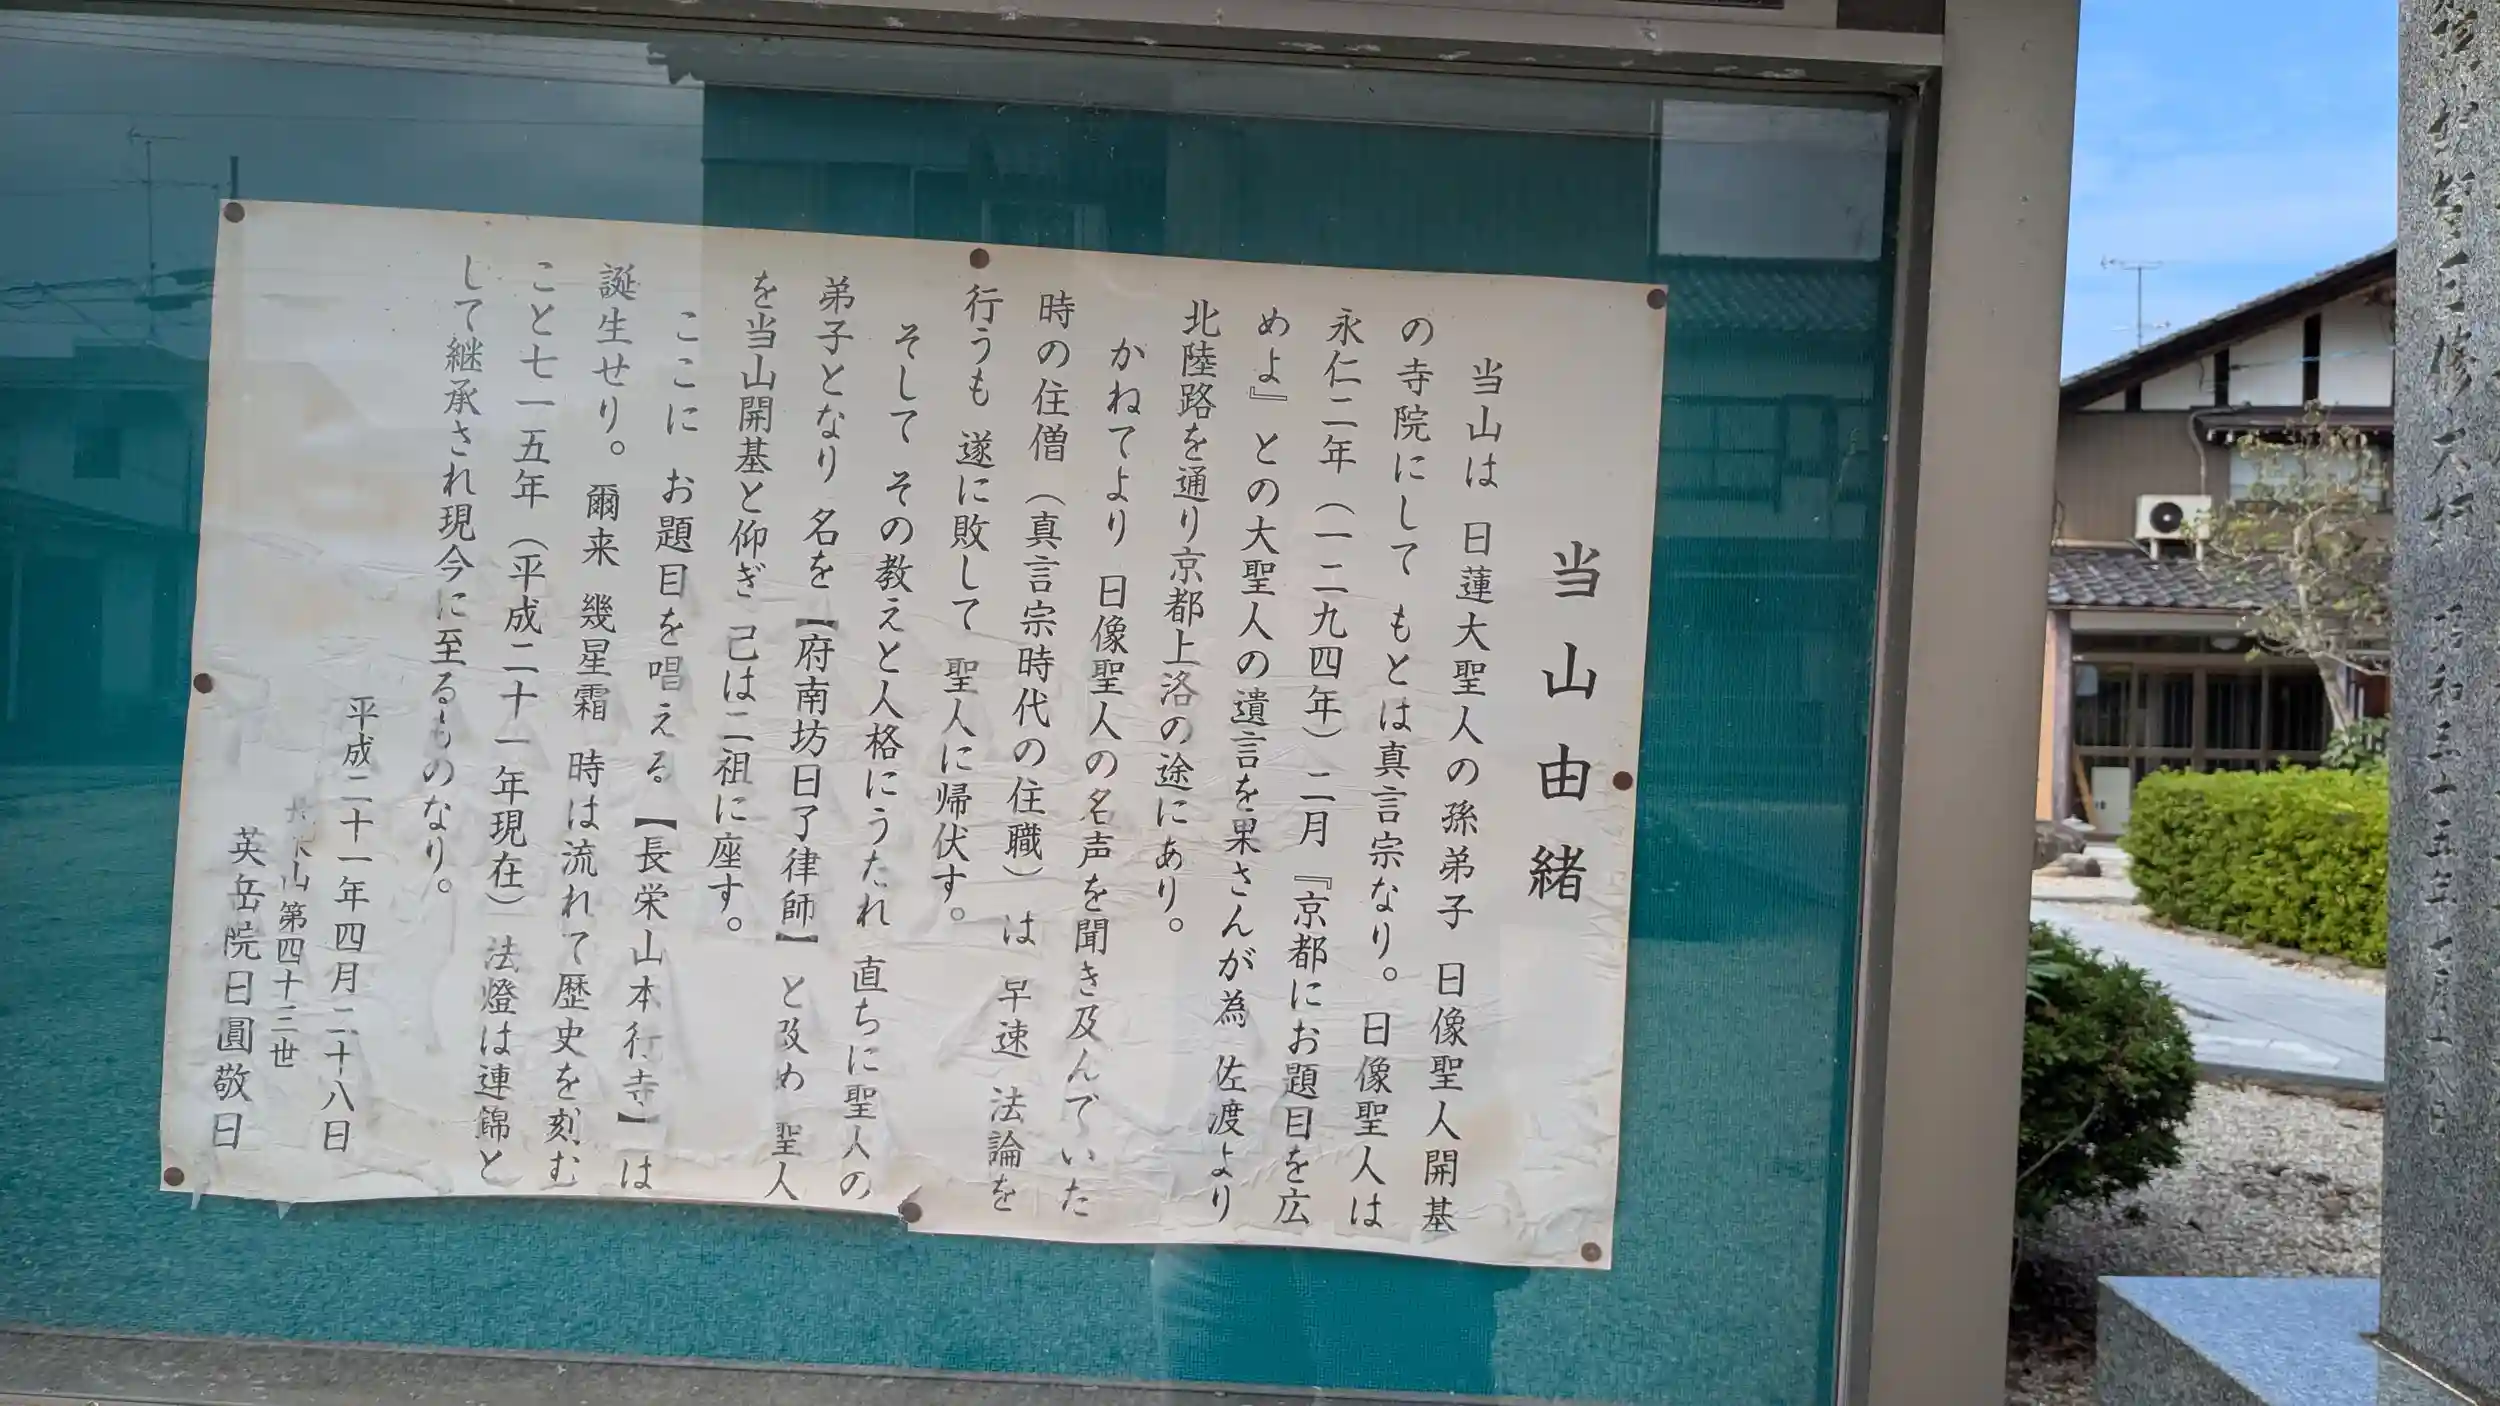 当山由緒
当山は 日蓮大聖人の孫弟子 日像聖人開基
の寺院にして もとは真言宗なり。日像聖人は
永仁二年（一二九四年）二月『京都にお題目を広
めよ』との大聖人の遺言を果さんが為 佐渡より
北陸路を通り京都上洛の途にあり。
かねてより 日像聖人の名声を聞き及んでいた
時の住僧（真言宗時代の住職）は 早速 法論を
行うも 遂に敗して 聖人に帰伏す。
そして その教えと人格にうたれ 直ちに聖人の
弟子となり 名を【府南坊日了律師】と改め 聖人
を当山開基と仰ぎ 己は二祖に座す。
ここに お題目を唱える【長栄山本行寺】は
誕生せり。爾来 幾星霜 時は流れて歴史を刻む
こと七一五年（平成二十一年現在）法燈は連錦と
して継承され現今に至るものなり。
平成二十一年四月二十八日
山第四十三世
英岳院日圓敬白
昭和三十五年